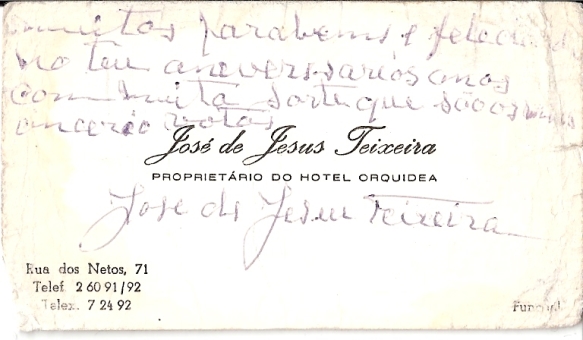 muitos parabems e felecid
no teu aneverssariós anos
com muita sorte que sõoos
votos
José de Jesus Teixeira
PROPRIETÁRIO DO HOTEL ORQUIDEA
Jose de Jesu Teixeira
Rua dos Netos, 71
Telef. 2 60 91/92
Telex. 7 24 92
Funchal